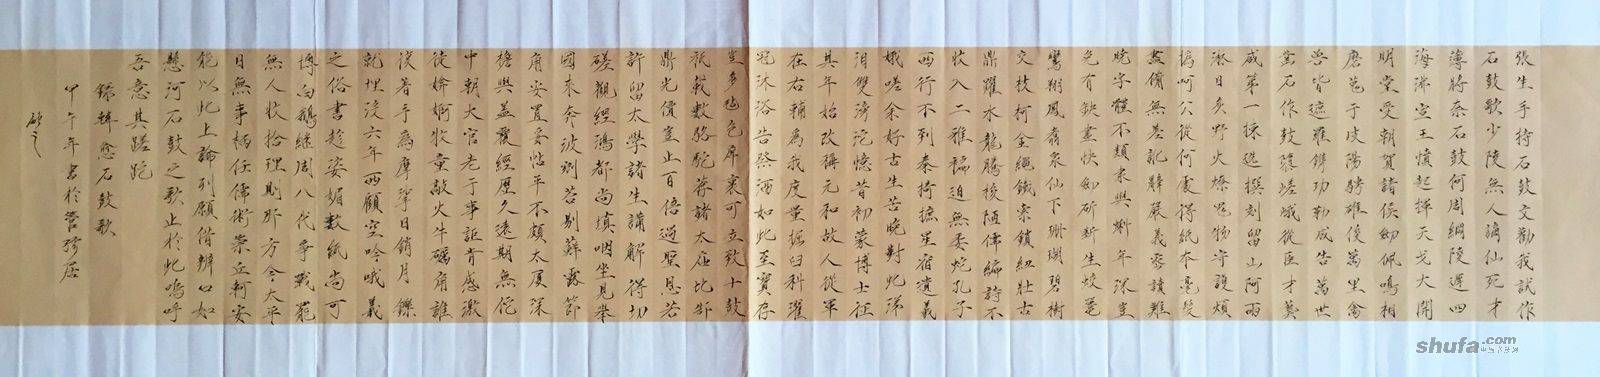 張生手持石鼓文勸我試作
石鼓歌少陵無人謫仙死才
薄將奈石鼓何周綱陵遲四
海沸宣王憤起揮天戈大開
明堂受朝賀諸侯劍佩鳴相
磨蒐于岐陽騁雄俊萬里禽
獸皆遮羅鐫功勒成告萬世
鑿石作鼓隳嵯峨從臣才藝
咸第一揀選撰刻留山阿雨
淋日炙野火燎鬼物守護煩
撝呵公從何處得紙本毫髮
盡備無差訛辭嚴義密讀難
曉字體不類隸與蝌年深豈
免有缺畫快劍斫斷生蛟鼉
鸞翔鳳翥眾仙下珊瑚碧樹
交枝柯金繩鐵索鎖紐壯古
鼎躍水龍騰梭陋儒編詩不
收入二雅褊迫無委蛇孔子
西行不到秦掎摭星宿遺羲
娥嗟余好古生苦晚對此涕
淚雙滂沱憶昔初蒙博士徵
其年始改稱元和故人從軍
在右輔為我度量掘臼科濯
冠沐浴告祭酒如此至寶存
豈多氈包席裹可立致十鼓
祇載數駱駝薦諸太廟比郜
鼎光價豈止百倍過聖恩若
許留太學諸生講解得切
磋觀經鴻都尚填咽坐見舉
國來奔波剜苔剔蘚露節
角安置妥帖平不頗大廈深
檐與蓋覆經歷久遠期無佗
中朝大官老于事詎肯感激
徒媕婀牧童敲火牛礪角誰
復著手為摩挲日銷月鑠
就埋沒六年西顧空吟哦羲
之俗書趁姿媚數紙尚可
博白鵝繼周八代爭戰罷
無人收拾理則那方今太平
日無事柄任儒術崇丘軻安
能以此上論列願借辨口如
懸河石鼓之歌止於此嗚呼
吾意其蹉跎
錄韓愈石鼓歌
甲午年書於居
shufa.com